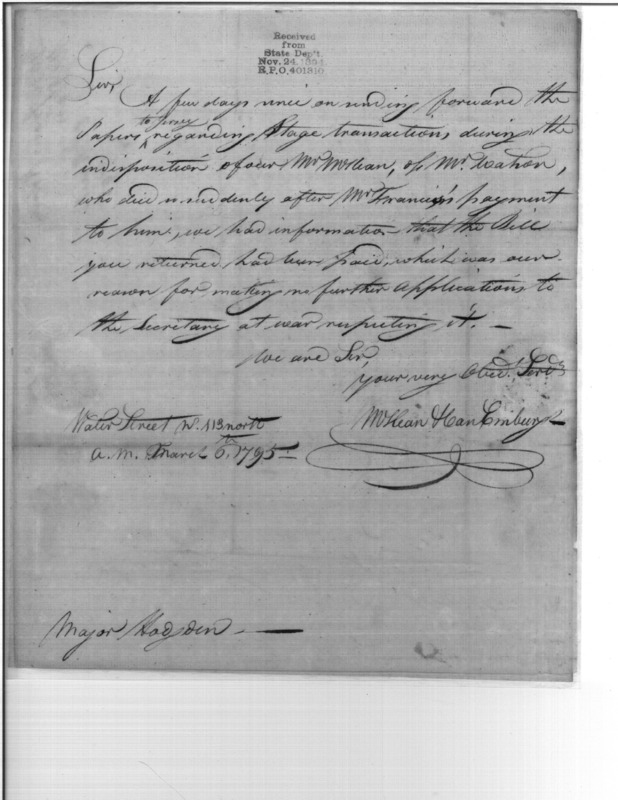 Received
from
State Dep't.
Nov. 24. 1894
R.P.O. 401310
Sir,
A few days since on sending forward the
to prove
Papers ^ regarding Stage transactions during the
indisposition of our Mr McLean, of Mr
who died so suddenly after Mr Francis's payment
to him, we had information that the Bill
you returned had been paid, which was our
reason for making no further Applications to
the Secretary at war respecting it. —
We are Sir,
your very Obed.t Serv.ts
Water Street No. 113 north
a.m. March 6th, 1795 —
McLean & Van Emburgh
Major Hodgden —